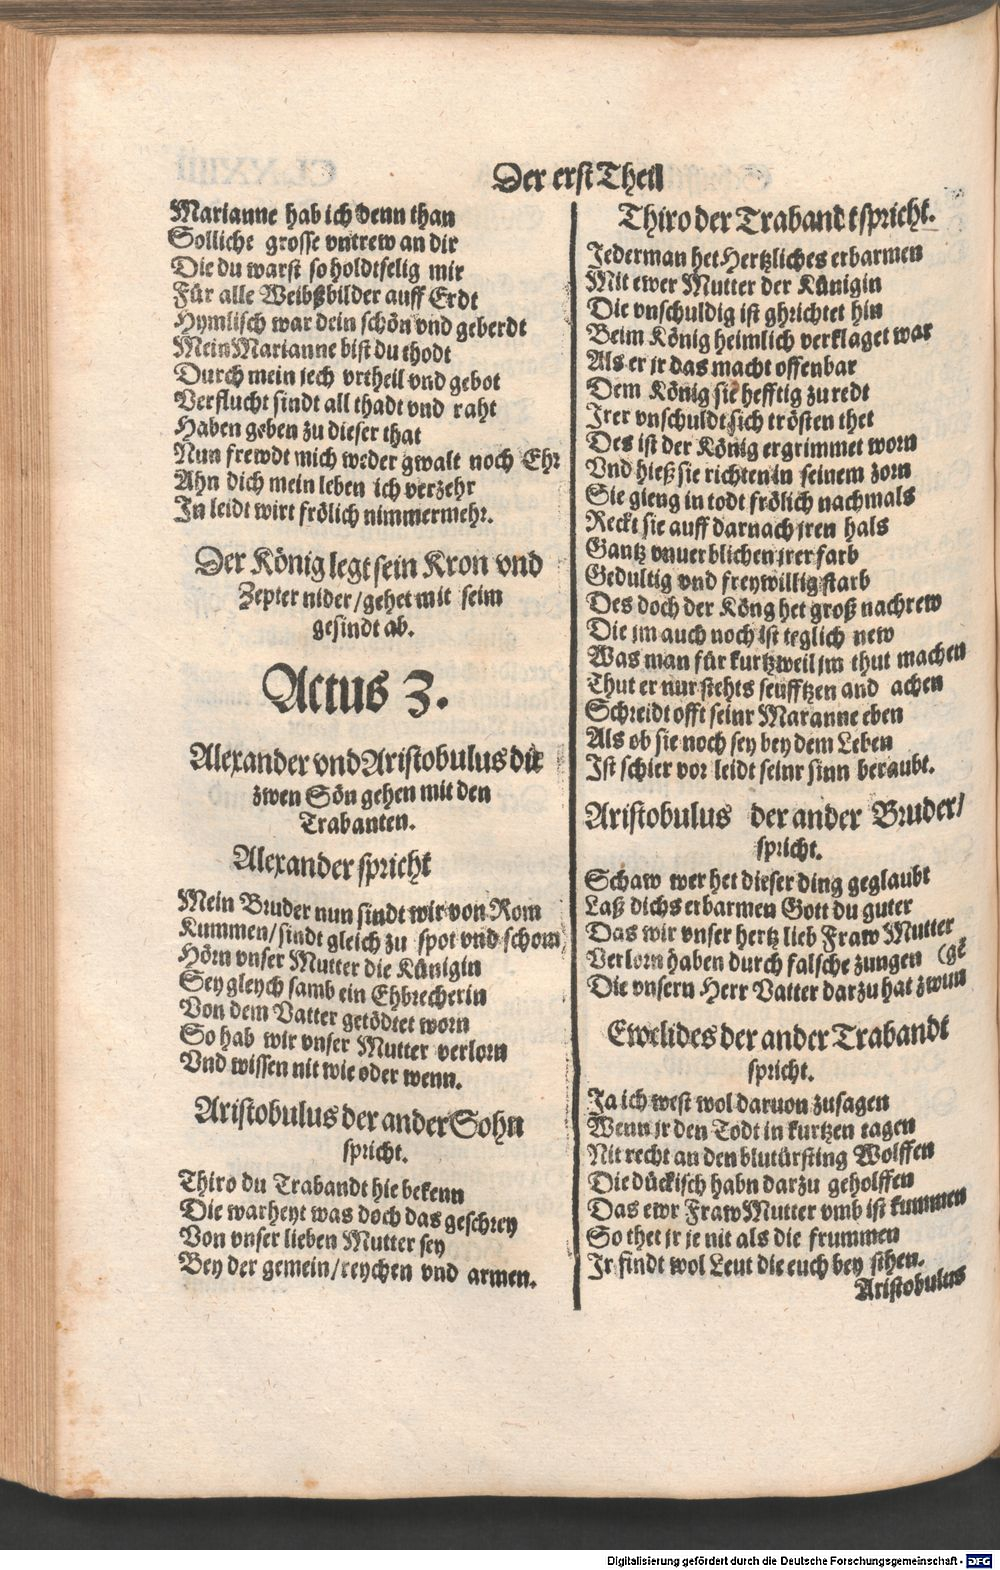 Der erst Theil
Marianne hab ich denn than
Solliche grosse vntrew an dir
Die du warst so holdtselig mir
Für alle Weibßbilder auff Erdt
Hymlisch war dein schön vnd geberdt
Mein Marianne bist du thodt
Durch mein jech vrtheil vnd gebot
Verflucht sindt all thadt vnd raht
Haben geben zu dieser that
Nun frewdt mich weder gwalt noch Ehr
Ahn dich mein leben ich verzehr
In leidt wirt frölich nimmermehr.
Der König legt sein Kron vnd
Zepter nider/gehet mit seim
gesindt ab.
Actus 3.
Alexander vnd Aristobulus die
zwen Sön gehen mit den
Trabanten.
Alexander spricht
Mein Bruder nun sindt wir von Rom
Kummen/sindt gleich zu spot vnd schom
Hörn vnser Mutter die Künigin
Sey gleych samb ein Ehbrecherin
Von dem Vatter getödtet worn
So hab wir vnser Mutter verlorn
Vnd wissen nit wie oder wenn.
Aristobulus der ander Sohn
spricht.
Thiro du Trabandt hie bekenn
Die warheyt was doch das geschrey
Von vnser lieben Mutter sey
Bey der gemein/reychen vnd armen.
Thiro der Trabandt spricht.
Jederman het Hertzliches erbarmen
Mit ewer Mutter der Künigin
Die vnschuldig ist ghrichtet hin
Beim König heimlich verklaget war
Als er jr das macht offenbar
Dem König sie hefftig zu redt
Irer vnschuldt sich trösten thet
Des ist der König ergrimmet worn
Vnd hieß sie richten in seinem zorn
Sie gieng in todt frölich nachmals
Reckt sie auff darnach jren hals
Gantz vnuerblichen jrer farb
Gedultig vnd freywillig starb
Des doch der Köng het groß nachrew
Die jm auch noch ist teglich new
Was man für kurtzweil jm thut machen
Thut er nur stehts seufftzen and achen
Schreidt offt seinr Maranne eben
Als ob sie noch sey bey dem Leben
Ist schier vor leidt seinr sinn beraubt.
Aristobulus der ander Bruder/
spricht.
Schaw wer het dieser ding geglaubt
Laß dichs erbarmen Gott du guter
Das wir vnser hertz lieb Fraw Mutter
Verlorn haben durch falsche zungen (gẽ
Die vnsern Herr Vatter darzu hat zwun
Ewelides der ander Trabandt
spricht.
Ja ich west wol daruon zusagen
Wenn jr den Todt in kurtzen tagen
Nit recht an den blutürsting Wolffen
Die dückisch habn darzu geholffen
Das ewr Fraw Mutter vmb ist kummen
So thet jr je nit als die frummen
Ir findt wol Leut die euch bey sthen.
Aristobulus
Digitalisierung gefördert durch die Deutsche Forschungsgemeinschaft - DFG